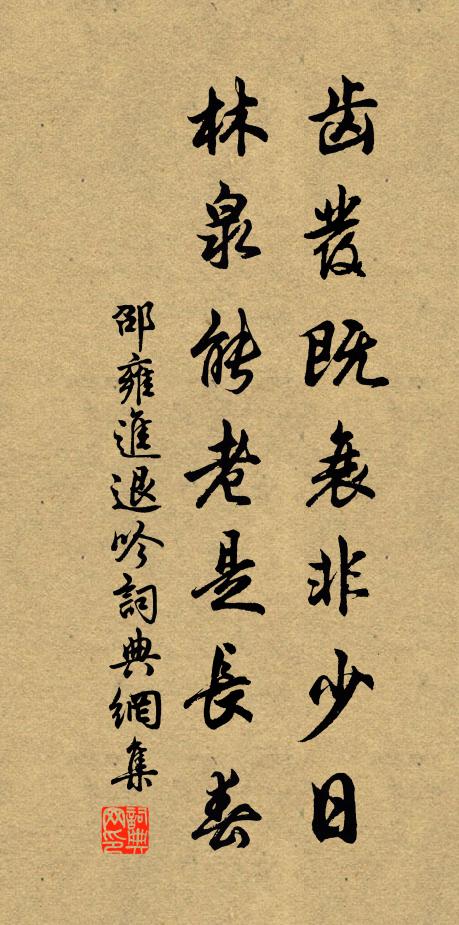 齿發既衰非少日
林泉能老是長春
邵雍進退吟詞典網集
詞典网印